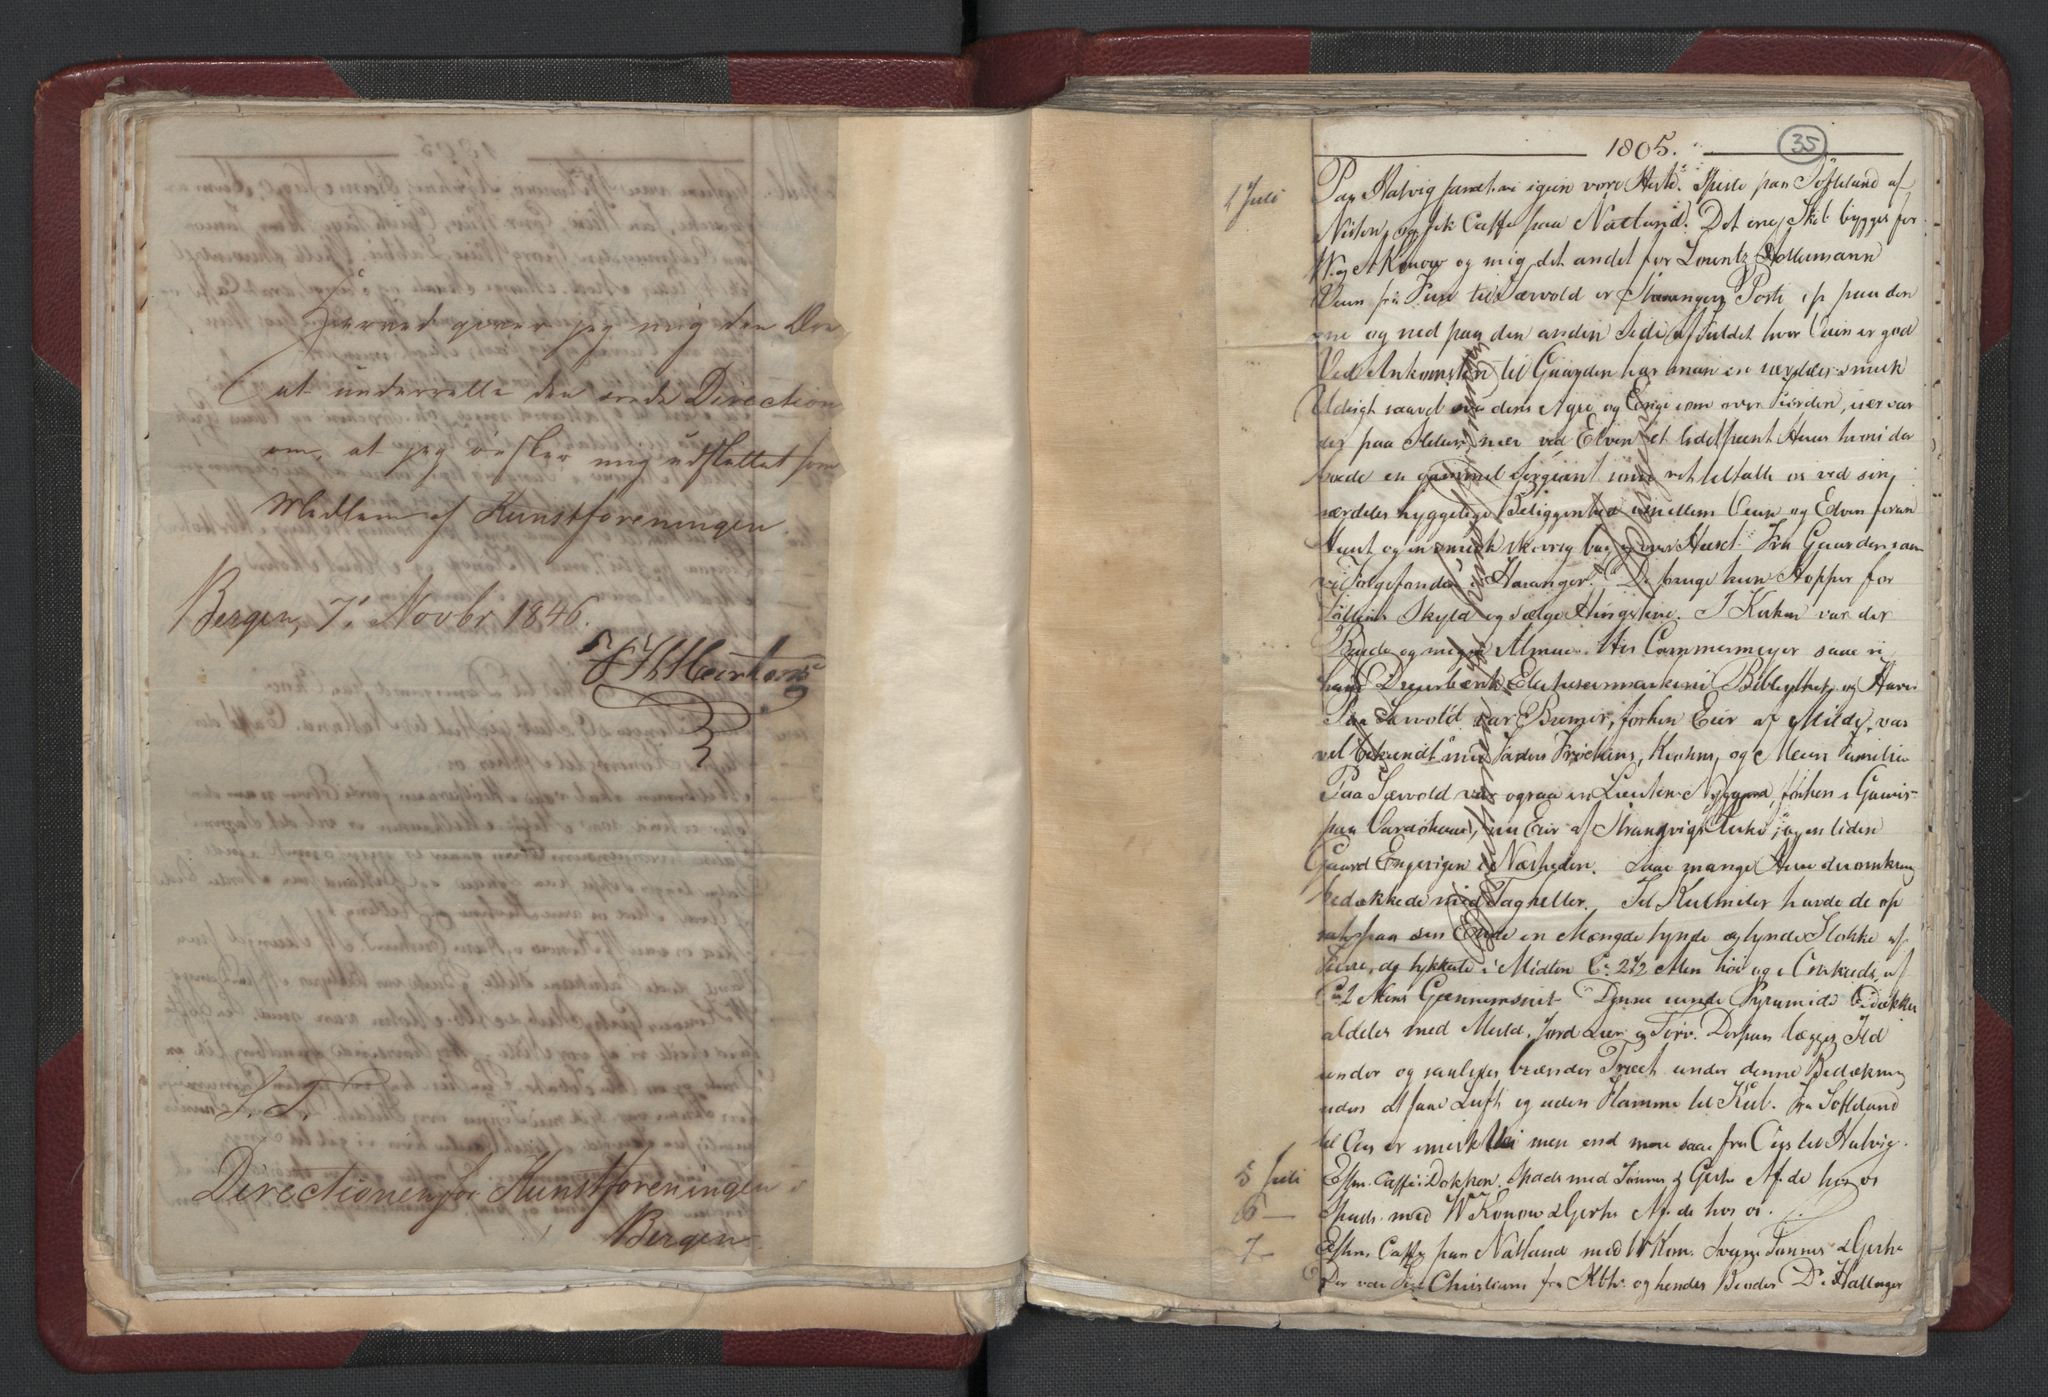 Herved giver jeg mig den Ære
at underrette den ærede Direction
om, at jeg ønsker mig udslettet som
Medlem af Kunstforeningen.
Bergen, 7' Novbr 1846.
S. T.
Directionen for Kunstforeningen i
Bergen
1805.
35
4 Juli
Paa Halvig fandt vi igien vore Heste. Spiste paa Søfteland af
Nisten, og fik Caffe paa Natland. Det ene Skib bygges for
W. og A Konow og mig, det andet for Lorentz Holtermann
Veien fra Fuse til Sævold er Stavangers Post op paa den
ene og ned paa den anden Side af Fieldet hvor Veien er god
Ved Ankomsten til Gaarden har man en særdeles smuk
Udsigt saavel over dens Agre og Enge som over Fiorden, især var
der paa Heden nær ved Elven et lidet pent Huus hvori der
boede en gammel Sergeant som ret tiltalte os ved sin
særdeles hyggelige Beliggenhed imellem Veien og Elven foran
Huset og en smuk Skovrig bag og over Huset. Fra Gaarden saae
vi Folgefonden i Haranger. De bruge kun Hopper for
Føllenes Skyld og sælge Hingstene. I Kirken var der
Brude og megen Almue. Hos Cammermeyer saae vi
hans Dreierbænk Electricermaskine Bibliothek og Have
Paa Sævold var Bremer, forhen Eier af Milde, var
vel bekiendt med Faders Frøchens, Krohns, og Meiers Familie
Paa Sævold var ogsaa en Lieuten. Nygaard, forhen i Garnis-
paa Vardøhuus, nu Eier af Strandvigs Kirke, og en liden
Gaard Engevigen i Nærheden. Saae mange Huse deromkring
bedækkede med Tagheller. Til Kulmiler havde de op
sat paa sin Ende en Mængde tynde og tynde Stokke af
Furre, de tykkeste i Midten C: 2 1/2 Alen høi og i Omkreds af
C 2 Alens Giennemsnit. Denne runde Pyramide bedækkes
aldeles med Muld, Jord Leer og Torv. Derpaa lægges Ild
under og saaledes brænder Træet under denne Bedækning
uden at faae Luft og uden Flamme til Kul. Fra Søfteland
til Ous er smuk Vei men end mere saae fra Ous til Halvig.
5 Juli Efterm. Caffe i Dokken. Spads med Fanner & Gerhe Af. de hos os
6 — Spads. med W Konow & Gerhe Af. de hos os.
7 — Efterm. Caffe paa Natland med W Kon. Svane Fanner & Gerhe
Der var Christiane fra Kbhv. og hendes Broder Dr. Hallager